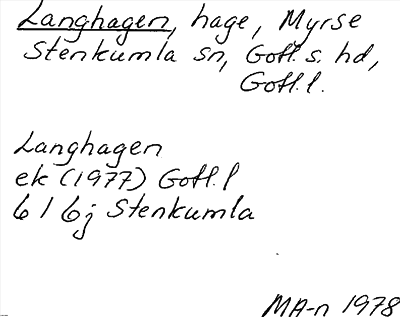 Langhagen, hage, Myrse
Stenkumla sn, Gotl. s. hd,
Gotl. l.
Langhagen
ek (1977) Gotl. l
6 I 6j Stenkumla
MA-n 1978